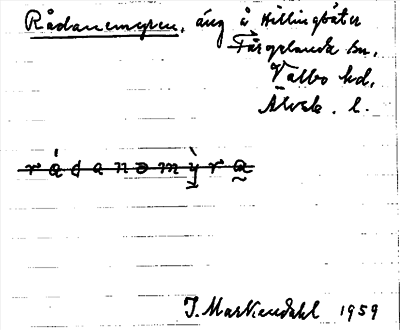 Rådanemyren, äng å Hillingsäter
Färgelanda sn,
Valbo hd,
Älvsb. l.
I. Markendahl 1959